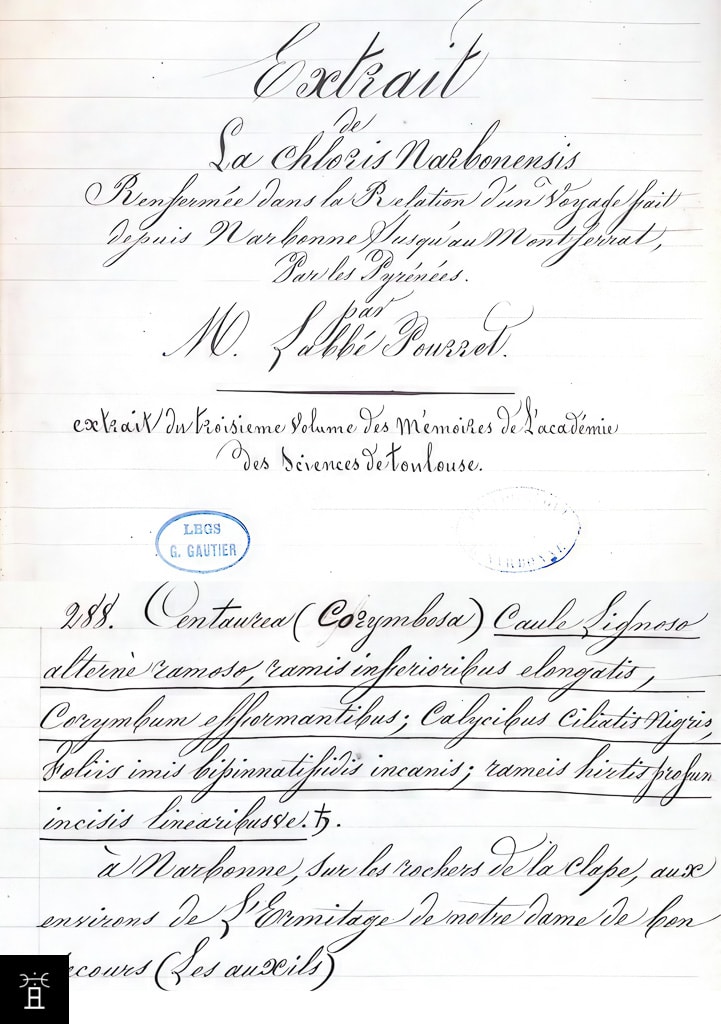 Extrait
de
La Chloris Narbonensis
Renfermée dans la Relation d'un Voyage fait
depuis Narbonne Jusqu'au Montserrat,
Par les Pyrénées.
par
M. Labbé Pourret.
extrait du troisieme Volume des Mémoires de L'académie
des Sciences de toulouse.
LEGS
G. GAUTIER
NARBONNE
288. Centaurea (Corymbosa) Caule Lignoso
alternè ramoso, ramis inferioribus elongatis,
Corymbum efformantibus; Calycibus Ciliatis Nigris,
Foliis imis bipinnatifidis incanis; rameis hirtis profun
incisis linearibusve. ♄.
à Narbonne, Sur les rochers de la Clape, aux
environs de L'Ermitage de notre dame de bon
ecours (Les auxils)